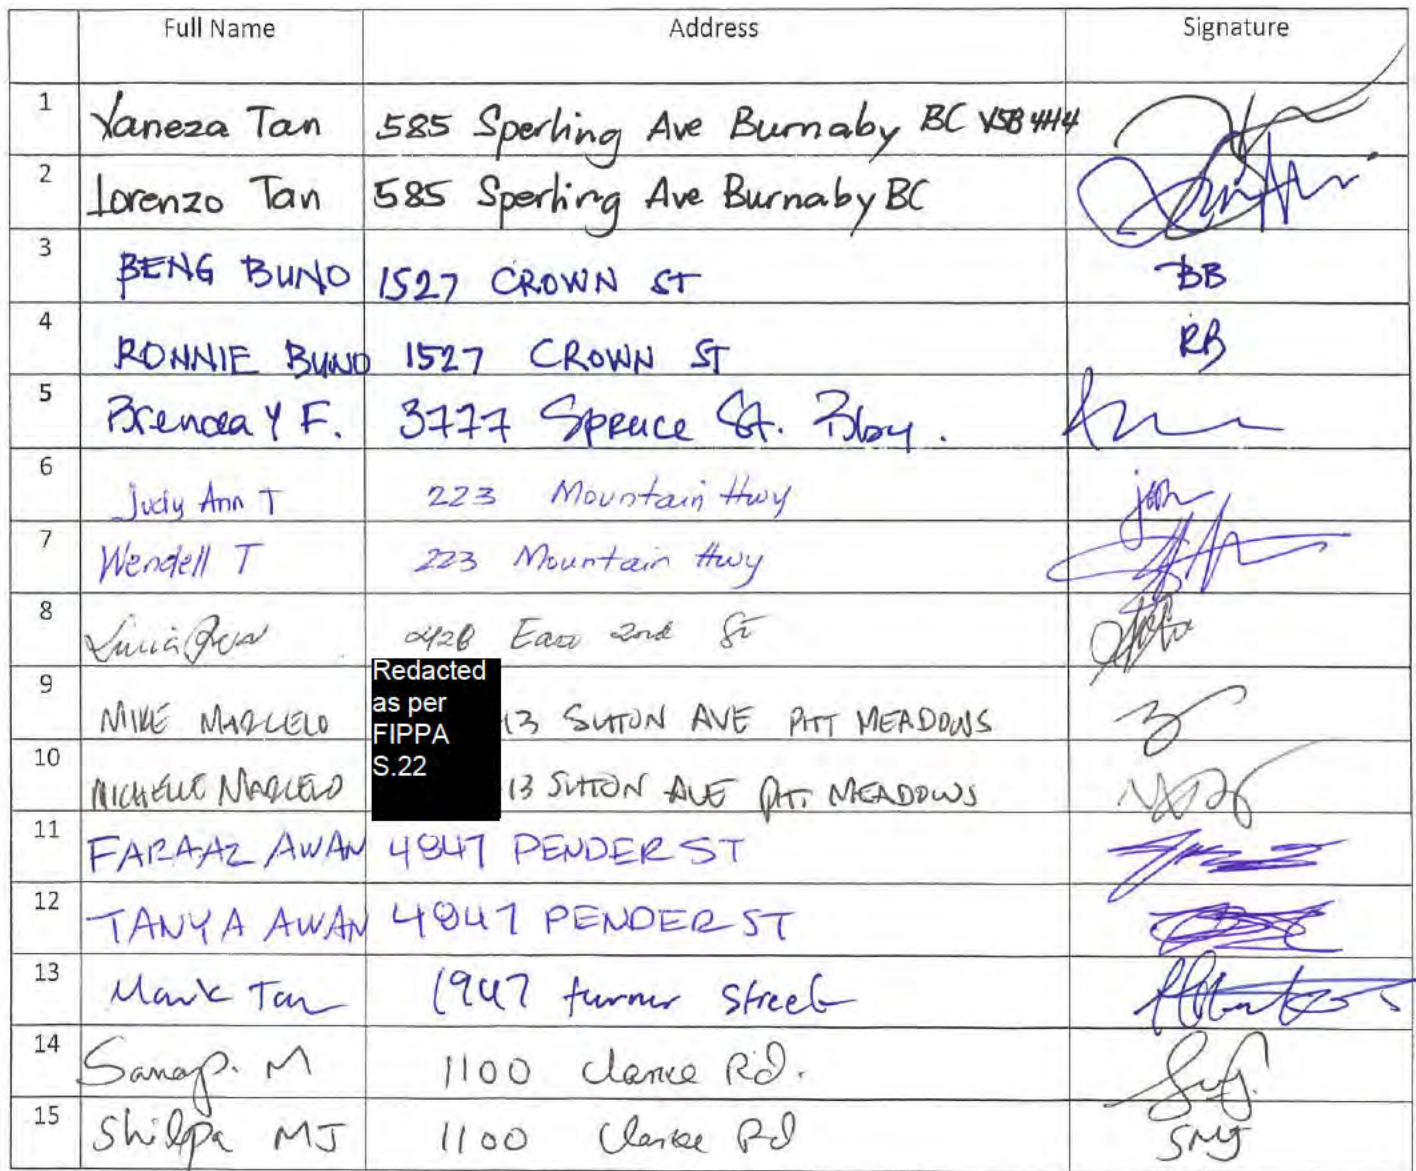 Full Name Address Signature
1 Yaneza Tan 585 Sperling Ave Burnaby BC V5B 4H4
2 Lorenzo Tan 585 Sperling Ave Burnaby BC
3 BENG BUNO 1527 CROWN ST BB
4 RONNIE BUNO 1527 CROWN ST RB
5 Brenda Y F. 3777 Spruce St. Bby.
6 Judy Ann T 223 Mountain Hwy
7 Wendell T 223 Mountain Hwy
8 East 2nd St
Redacted
as per
FIPPA
S.22
9 MIKE MARCELO 13 SUTTON AVE PITT MEADOWS
10 MICHELLE MARCELO 13 SUTTON AVE PITT MEADOWS
11 FARAAZ AWAN 4847 PENDER ST
12 TANYA AWAN 4847 PENDER ST
13 Mark Tan 1947 turner street
14 Sanoop. M 1100 Clarke Rd.
15 Shilpa MJ 1100 Clarke Rd SMJ